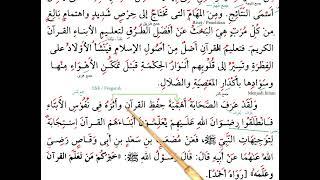 أسمى النتائج. ومن المهام التي تحتاج إلى حرص شديد واهتمام بالغ
من كل مرب هي البحث عن أفضل الطرق لتعليم الأبناء القرآن
الكريم. فتعليم القرآن أصل من أصول الإسلام فينشأ الأولاد على
الفطرة وتسبق إلى قلوبهم أنوار الحكمة قبل تمكن الأهواء منها
وسوادها بأكدار المعصية والضلال.
ولقد عرف الصحابة أهمية حفظ القرآن وأثره في نفوس الأبناء
فانطلقوا رضوان الله عليهم يعلمون أبناءهم القرآن استجابة
لتوجيهات النبي ﷺ، فعن مصعب بن سعد بن أبي وقاص رضي
الله عنهما عن أبيه قال: قال رسول الله ﷺ: «خيركم من تعلم القرآن
وعلمه» [رواه أحمد].